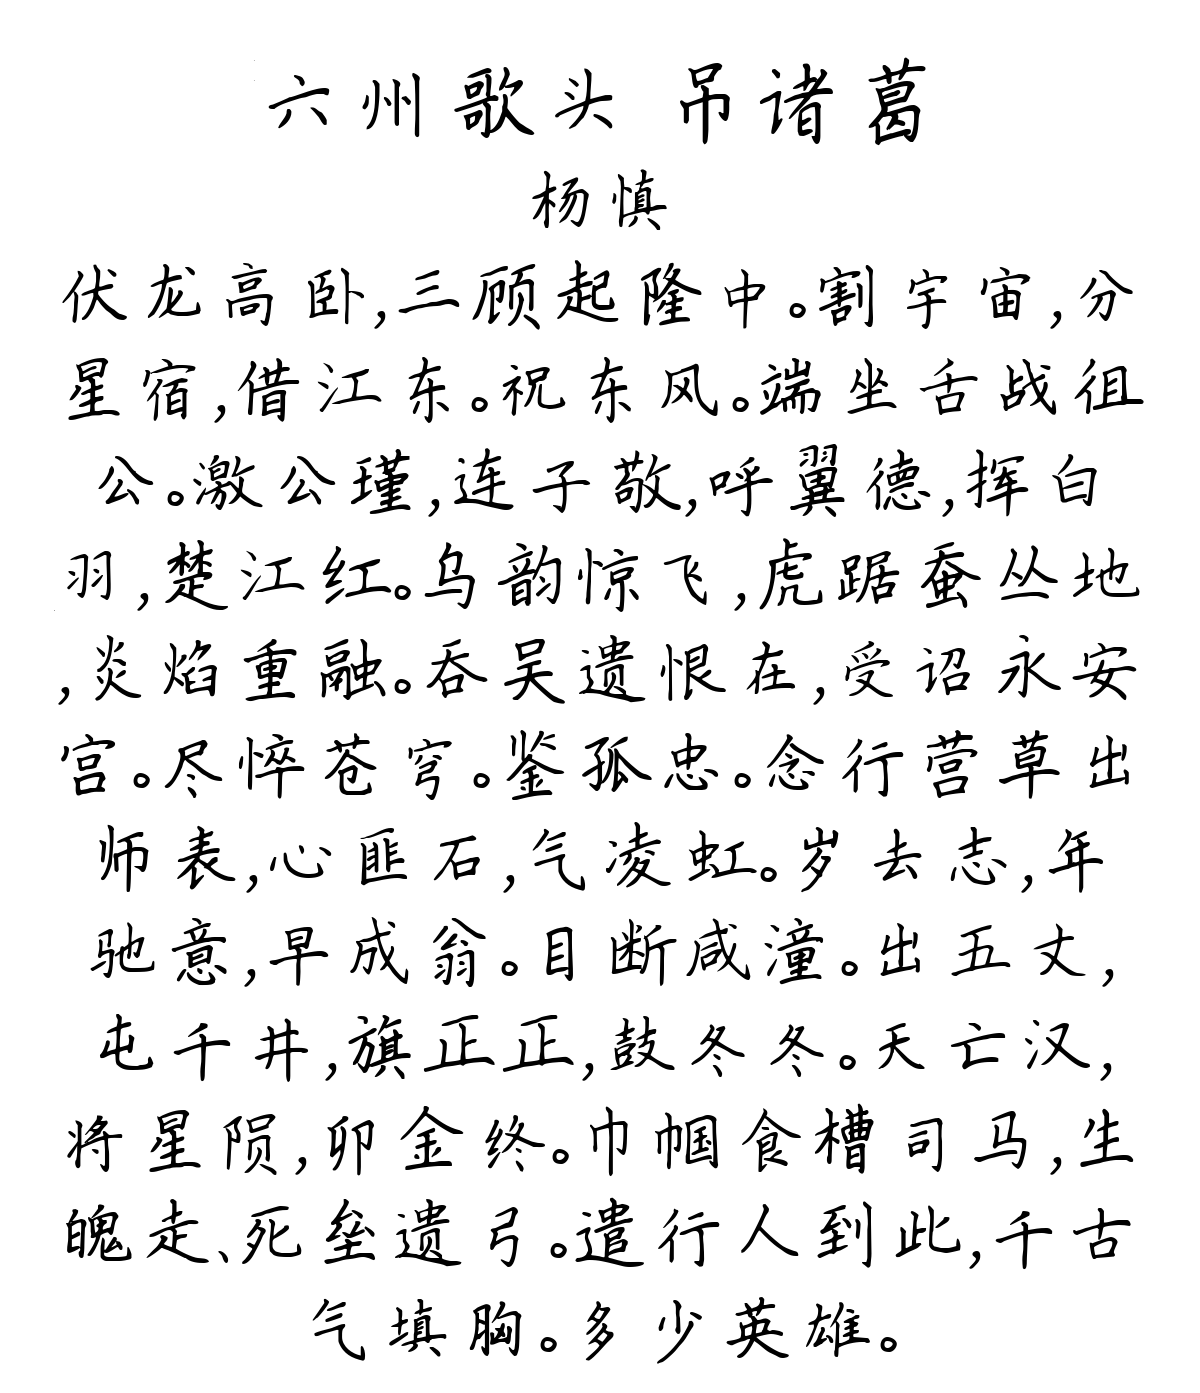 六州歌头 吊诸葛
杨慎
伏龙高卧,三顾起隆中。割宇宙,分
星宿,借江东。祝东风。端坐舌战徂
公。激公瑾,连子敬,呼翼德,挥白
羽,楚江红。乌韵惊飞,虎踞蚕丛地
,炎焰重融。吞吴遗恨在,受诏永安
宫。尽悴苍穹。鉴孤忠。念行营草出
师表,心匪石,气凌虹。岁去志,年
驰意,早成翁。目断咸潼。出五丈,
屯千井,旗正正,鼓冬冬。天亡汉,
将星陨,卯金终。巾帼食槽司马,生
魄走、死垒遗弓。遣行人到此,千古
气填胸。多少英雄。